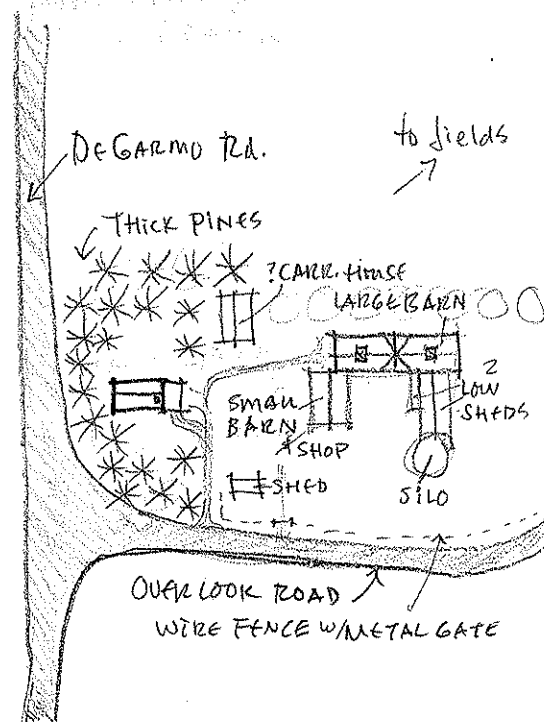 DEGARMO Rd.
to fields
THICK PINES
? CARR. HOUSE
LARGE BARN
SMALL
BARN
& SHOP
2
LOW
SHEDS
SHED
SILO
OVERLOOK ROAD
WIRE FENCE W/METAL GATE